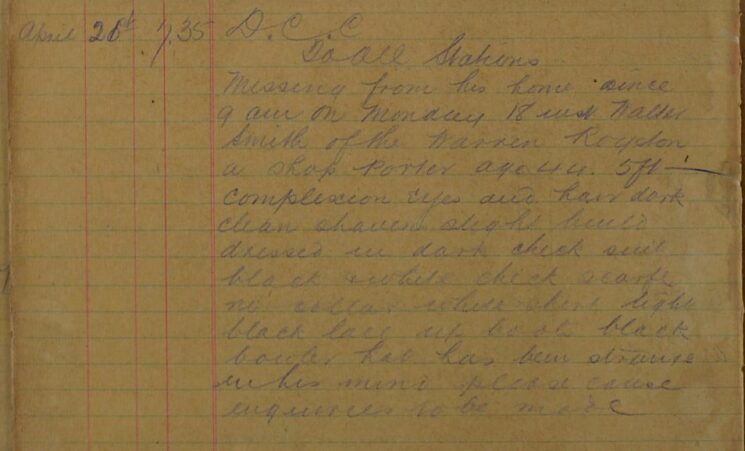 April 20th 7.35 D.C.C
To all Stations
Missing from his home since
9 am on Monday 18 inst Walter
Smith of the Warren Roydon
a shop Porter age 44. 5ft —
complexion Eyes and hair dark
clean shaven slight build
dressed in dark check suit
black & white check scarfe
no collar white shirt light
black lace up boots black
bowler hat has been strange
in his mind please cause
enquiries to be made